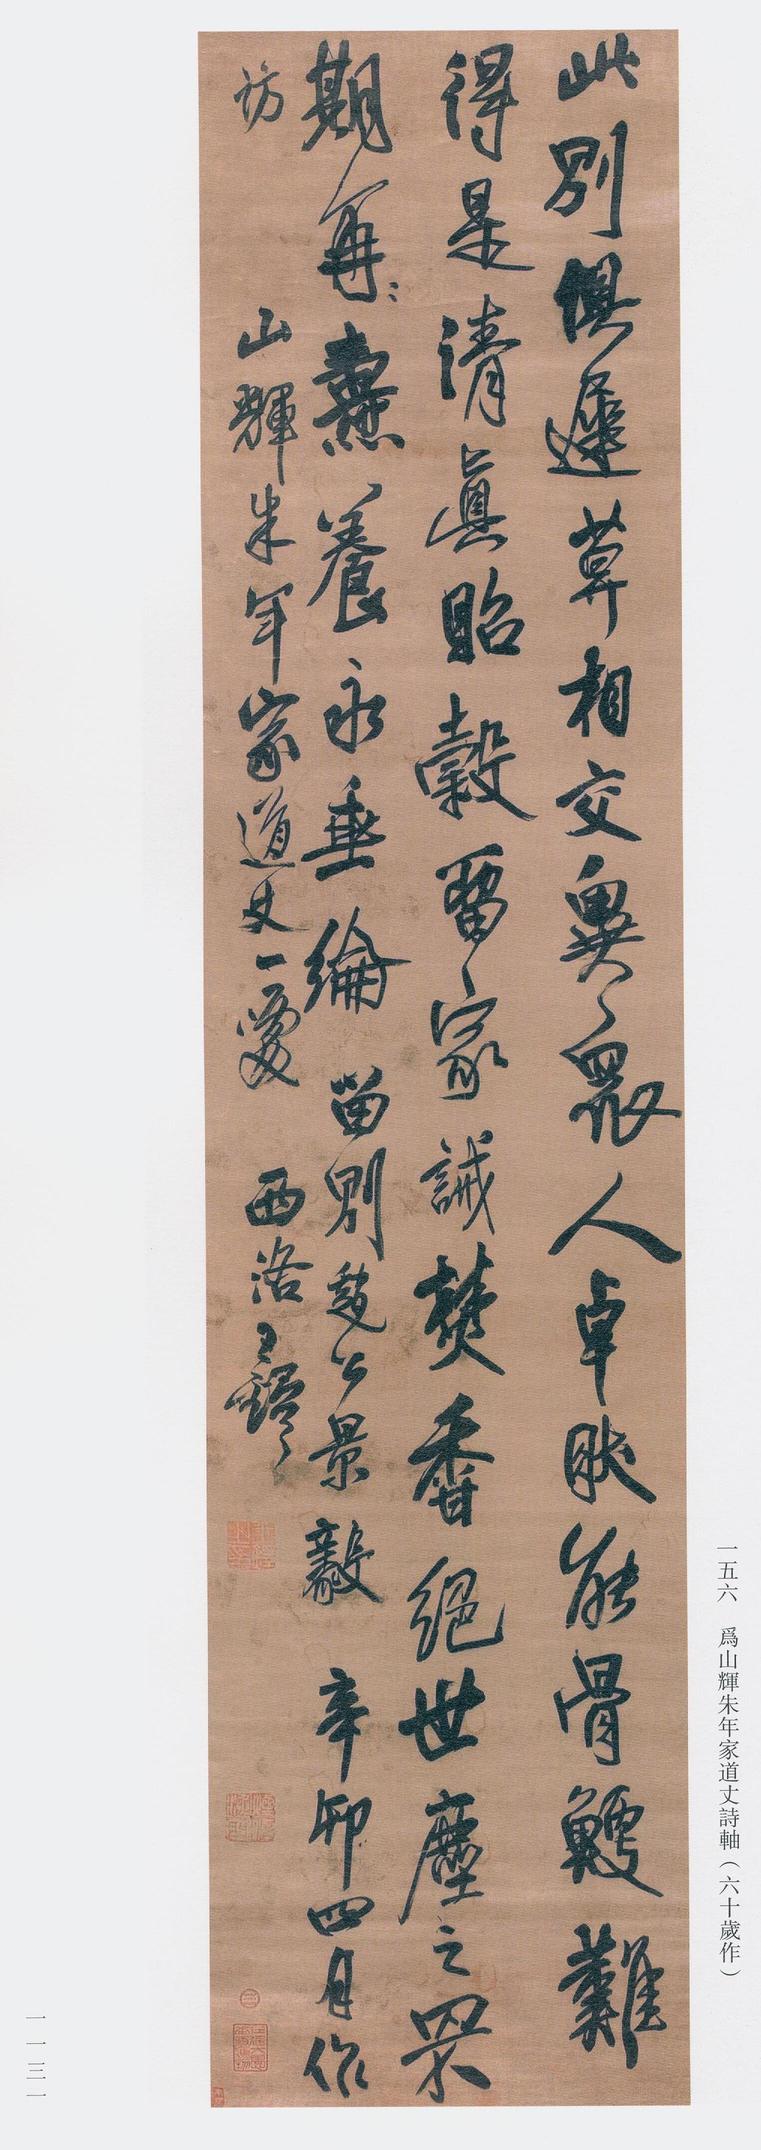 此別俱遲算相交異衆人卓然能骨鯁難
得是清真貽穀留家誡焚香絕世塵之罘
期再〻燾養永垂綸 留別趙公景毅 辛卯四月作
訪
山輝朱年家道丈一愛 西洛王鐸
一五六 爲山輝朱年家道丈詩軸（六十歲作）
一一三一